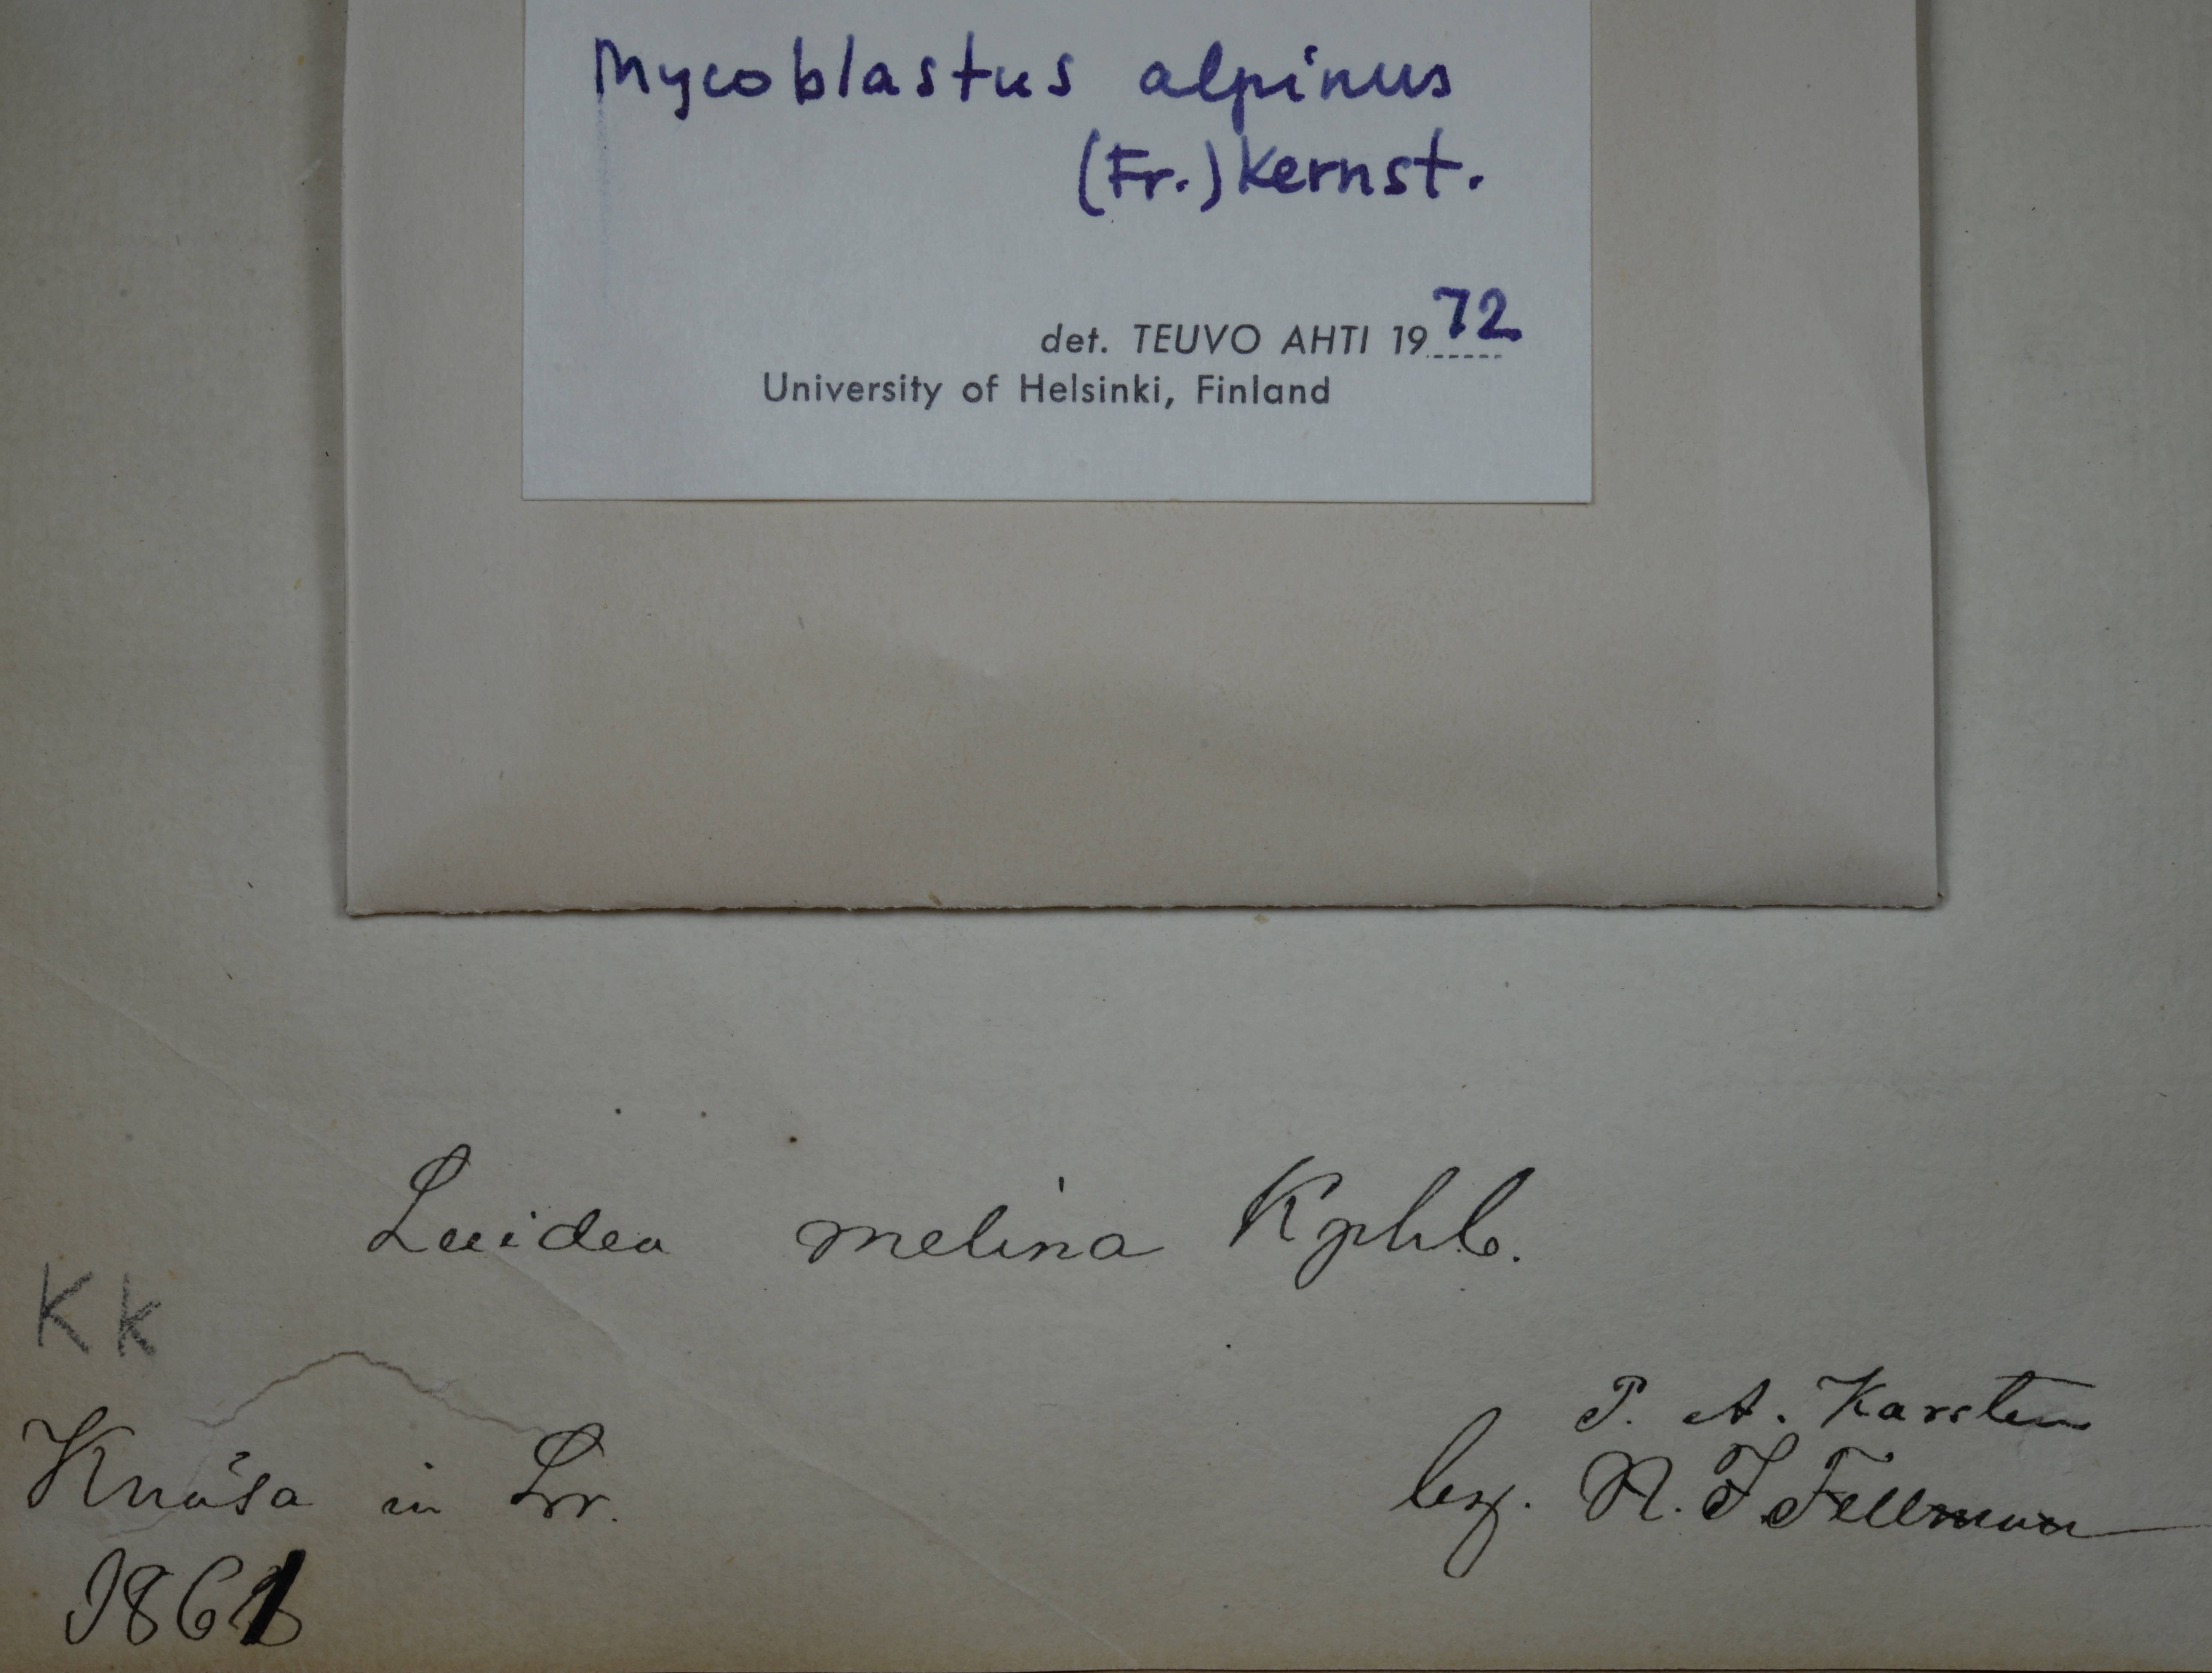 Mycoblastus alpinus
(Fr.) Kernst.
det. TEUVO AHTI 1972
University of Helsinki, Finland
melina Kphlb.
Kk
Knäsa in Lr.
1861
P. A. Karsten
leg. N. I. Fellman